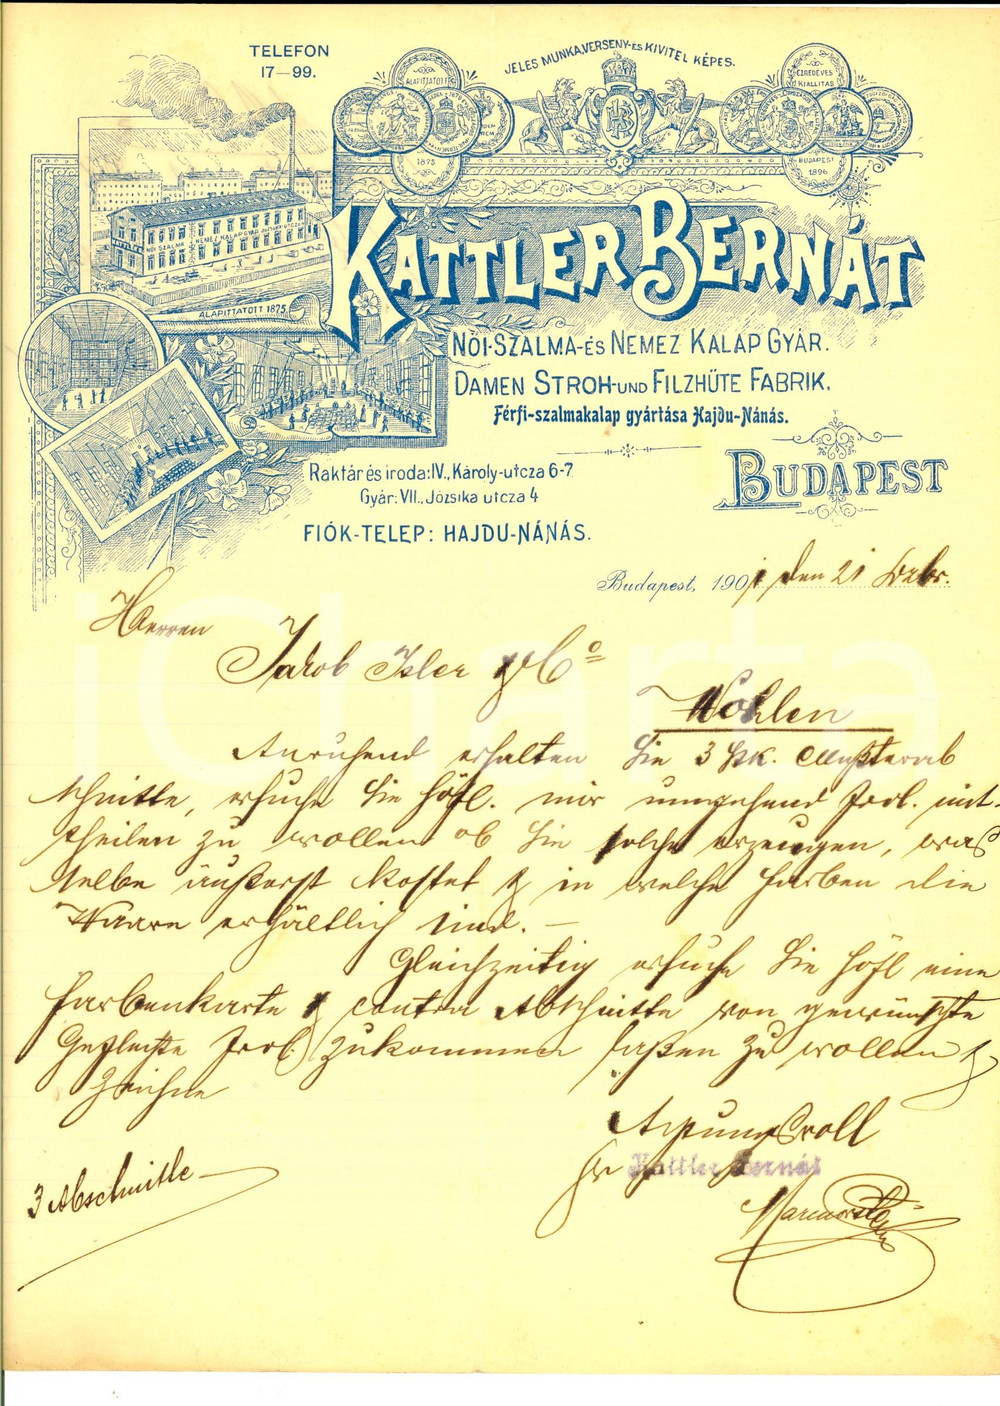 TELEFON
17—99.
JELES MUNKA, VERSENY-ÉS KIVITEL KÉPES.
ALAPITTATOTT
1875
EZREDÉVES
KIÁLLITÁS
BUDAPEST
1896
KB
NŐI SZALMA ÉS NEMEZ KALAPGYÁR
ALAPITTATOTT 1875
KATTLER BERNÁT
NŐI-SZALMA-ÉS NEMEZ KALAP GYÁR.
DAMEN STROH-UND FILZHÜTE FABRIK.
Férfi-szalmakalap gyártása Hajdu-Nánás.
Raktár és iroda: IV., Károly-utcza 6-7
Gyár: VII., Józsika utcza 4
FIÓK-TELEP: HAJDU-NÁNÁS.
BUDAPEST
Budapest, 1901, den 21 Febr.
Herren
Jakob Isler & Co
Wohlen
Anruhend erhalten Sie 3 Stk. Musterab
schnitte, ersuche Sie höfl. mir umgehend Frdl. mit-
theilen zu wollen ob Sie solche erzeugen, was
selbe äußerst kostet & in welche Farben die
Waare erhältlich sind. —
Gleichzeitig ersuche Sie höfl eine
Farbenkarte & contra Abschnitte von gewünschte
Geflechte Frdl. zukommen laßen zu wollen &
zeichne
Achtungsvoll
Kattler Bernát
3 Abschnitte
iCharta